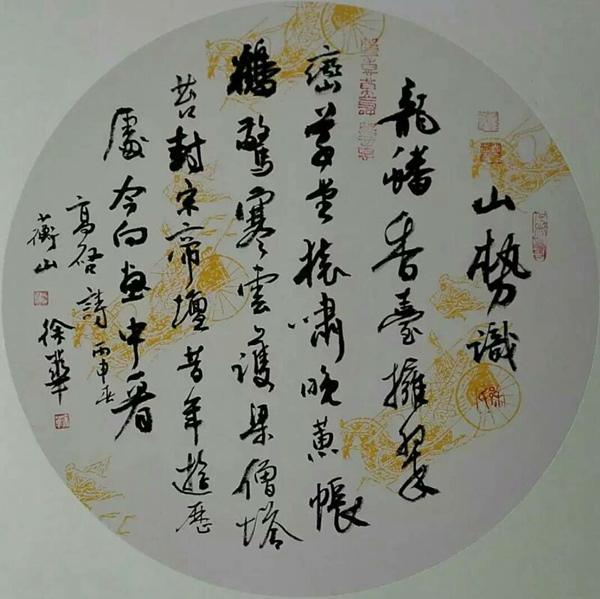 山勢識
龍蟠香臺擁翠
巒草堂猿嘯晚蕙帳
鶴驚寒雲護梁僧塔
苔封宋帝壇昔年遊歷
處今向畫中看
高啓詩丙申春
衡山徐華